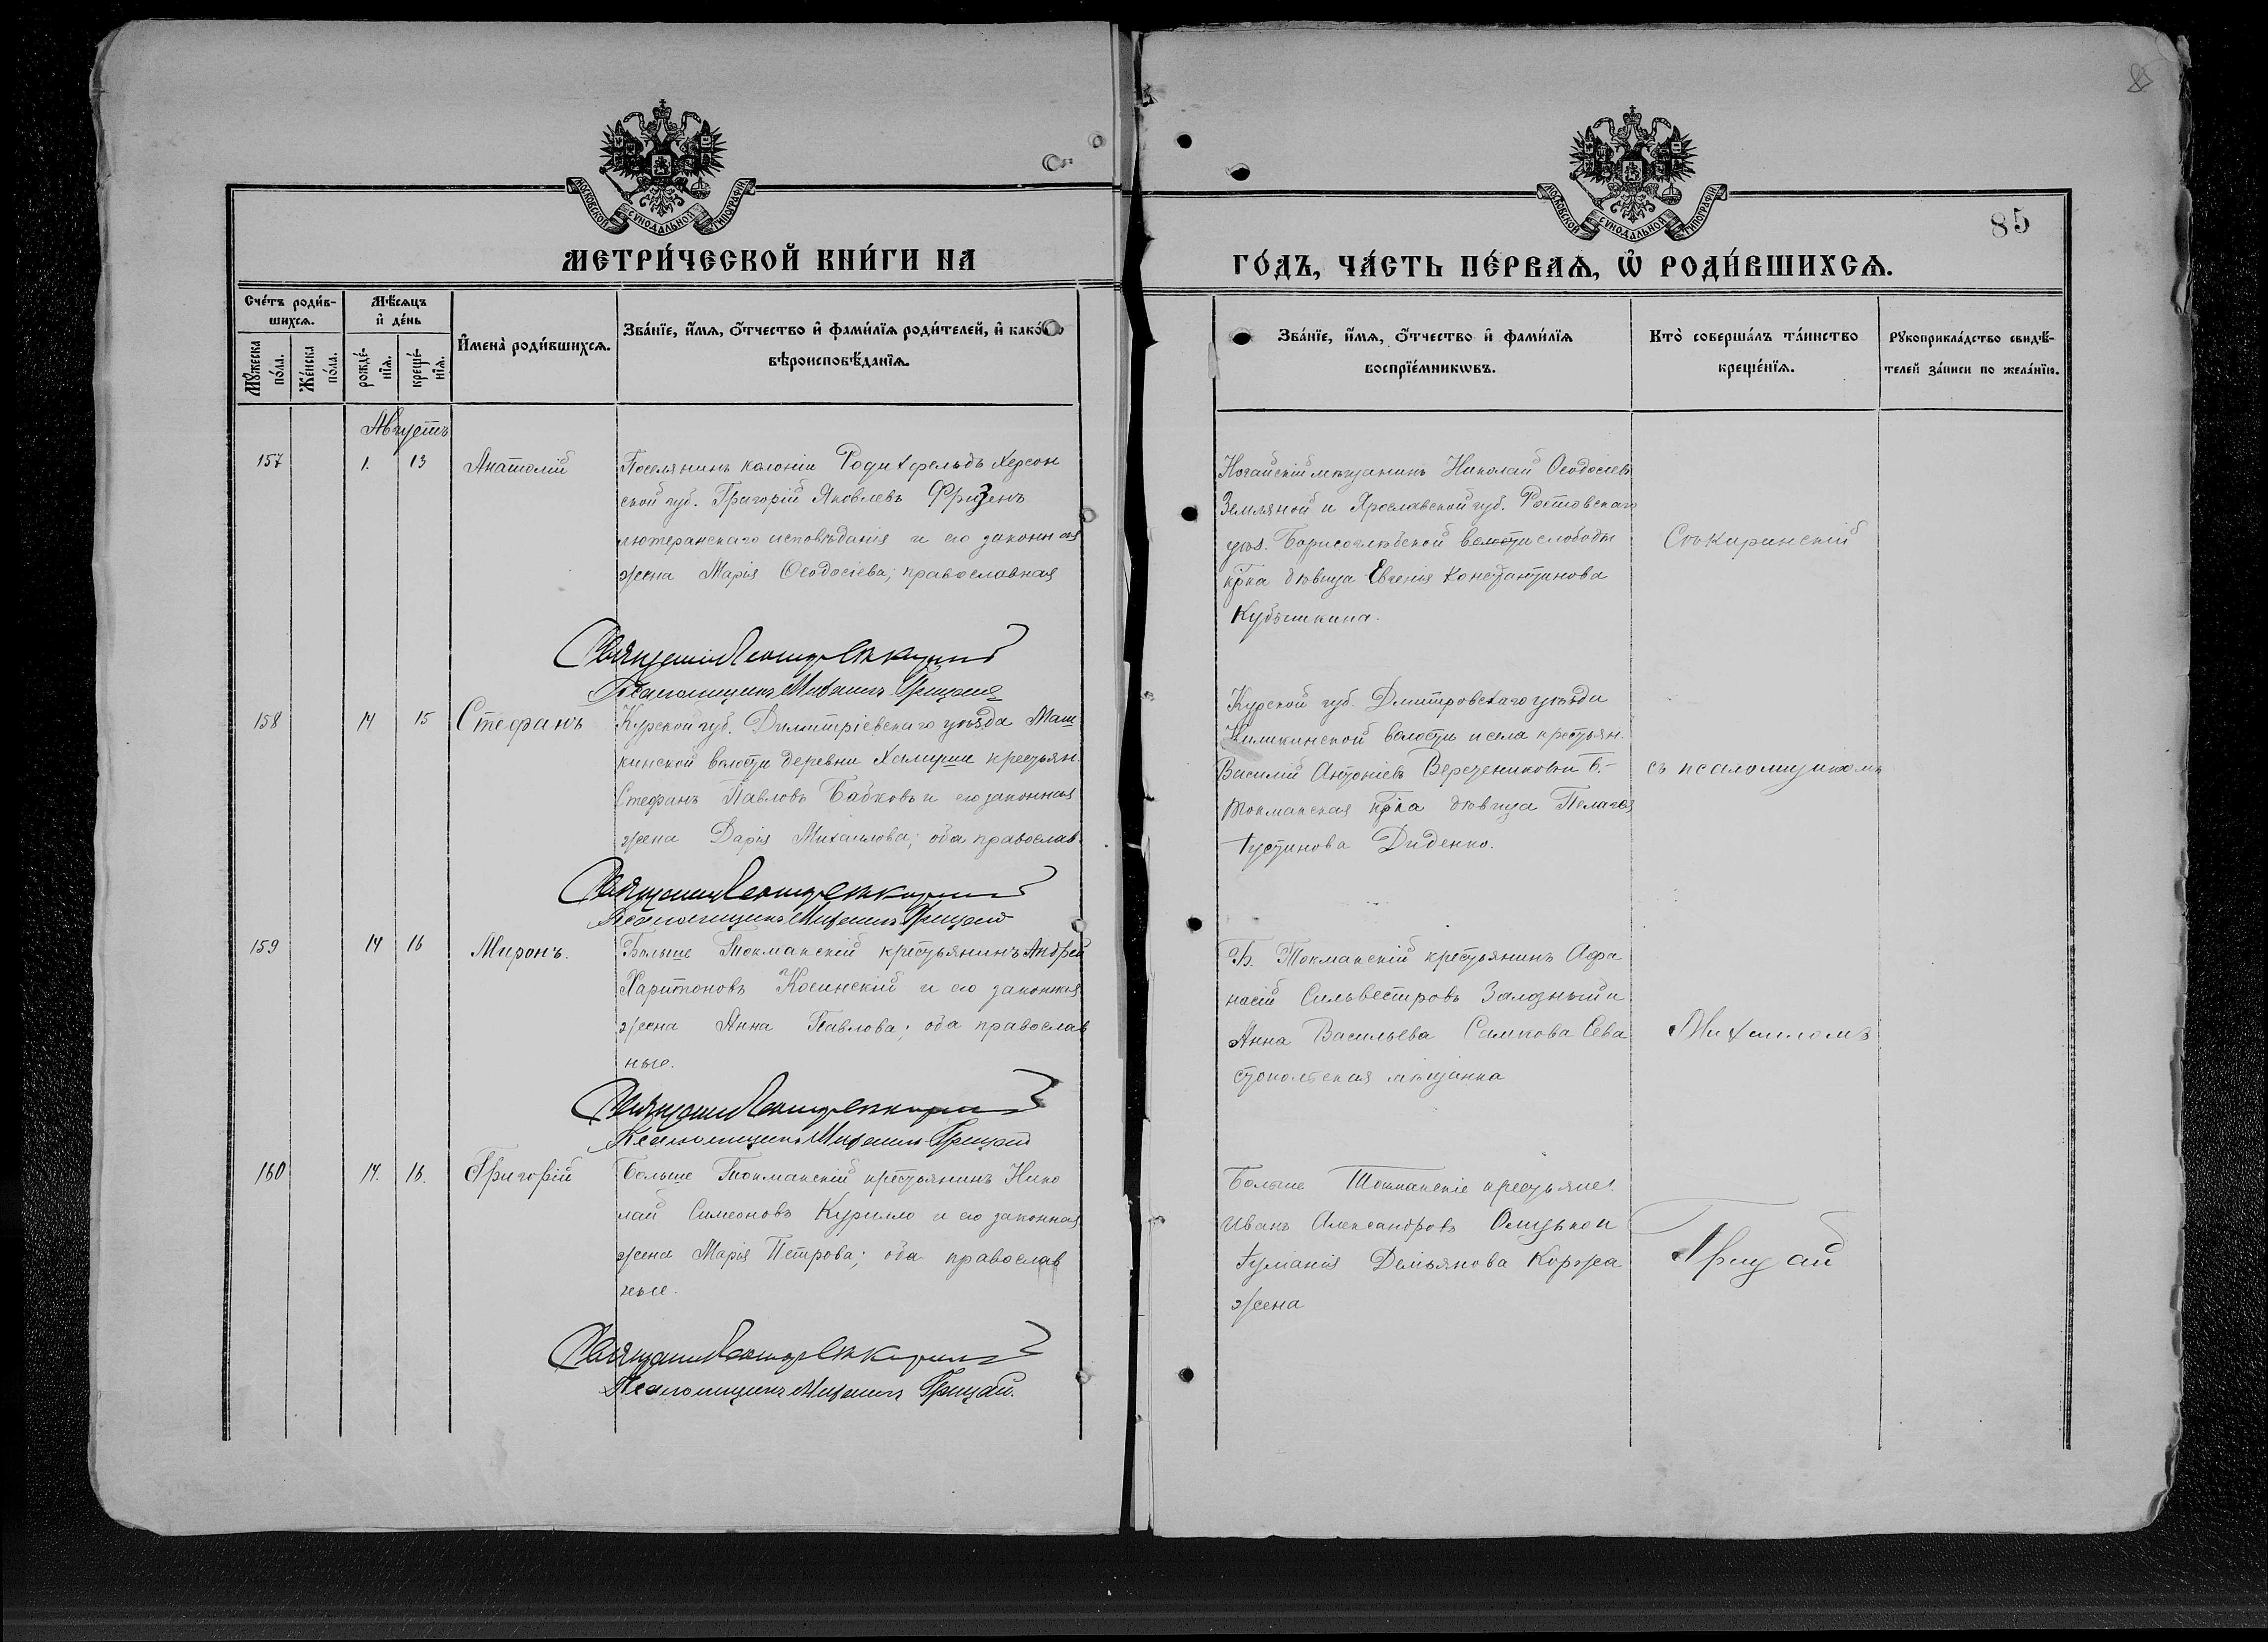 85
МОСКОВСКОЙ СѴНОДАЛЬНОЙ ТИПОГРАФІИ
МЕТРИ́ЧЕСКОЙ КНИ́ГИ НА
Сче́тъ роди́в-
шихсѧ.
Мѣ́сѧцъ
и҆ де́нь
Мꙋ́жеска
по́ла.
Же́нска
по́ла.
рожде́-
нїѧ.
креще́-
нїѧ.
И҆мена̀ роди́вшихсѧ.
Зва́нїе, и҆́мѧ, ѻ҆́тчество и҆ фами́лїѧ роди́телей, и҆ како́гѡ
вѣроисповѣ́данїѧ.
Августъ
157 1. 13 Анатолій
Поселянинъ колоніи Родихфельдъ Херсон
ской губ. Григорій Яковлевъ Фризенъ
лютеранскаго исповѣданія и его законная
жена Марія Ѳеодосіева; православная
Псаломщикъ Михаилъ Грицай
158 14 15 Стефанъ
Курской губ. Димитріевскаго уѣзда Маш
кинской волости деревни крестьян.
Стефанъ Павловъ Бабковъ и его законная
жена Дарія Михаилова; оба православ.
Псаломщикъ Михаилъ Грицай
159 14 16 Миронъ.
Больше Токмакскій крестьянинъ Андрей
Харитоновъ Косинскій и его законная
жена Анна Павлова; оба православ
ные.
Псаломщикъ Михаилъ Грицай
160 14. 16. Григорій
Больше Токмакскій крестьянинъ Нико
лай Симеоновъ Курилло и его законная
жена Марія Петрова; оба православ
ные.
Псаломщикъ Михаилъ Грицай.
МОСКОВСКОЙ СѴНОДАЛЬНОЙ ТИПОГРАФІИ
ГО́ДЪ, ЧА́СТЬ ПЕ́РВАѦ, Ѡ҆ РОДИ́ВШИХСѦ.
Зва́нїе, и҆́мѧ, ѻ҆́тчество и҆ фами́лїѧ
воспрїе́мникѡвъ.
Кто̀ соверша́лъ та́инство
креще́нїѧ.
Рꙋкоприкла́дство свидѣ́-
телей за́писи по жела́нїю.
Ногайскій мѣщанинъ Николай Ѳеодосіевъ
Земляной и Ярославской губ. Ростовскаго
уѣз. Борисоглѣбской волости слободы
кр̃ка дѣвица Евгенія Константинова
Кубышкина.
Сѣкиринскій
Курской губ. Дмитровскаго уѣзда
волости и села крестьян.
Василій Антоніевъ и Б.-
Токмакская кр̃ка дѣвица Пелагея
Іустинова Диденко.
съ псаломщикомъ
Б. Токмакскій крестьянинъ Афа
насій Сильвестровъ Залозный и
Анна Васильева Сева
стопольская мѣщанка
Михаиломъ
Больше Токмакскіе крестьяне:
Иванъ Александровъ и
Іуліанія Демьянова Коржа
жена
Грицай